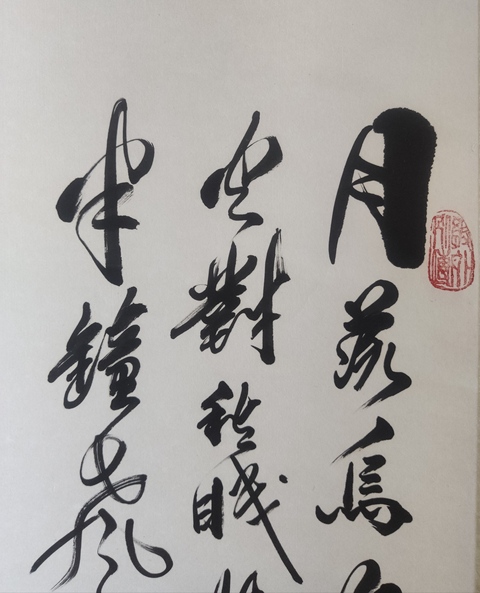 月落烏
火對愁眠
半鐘聲